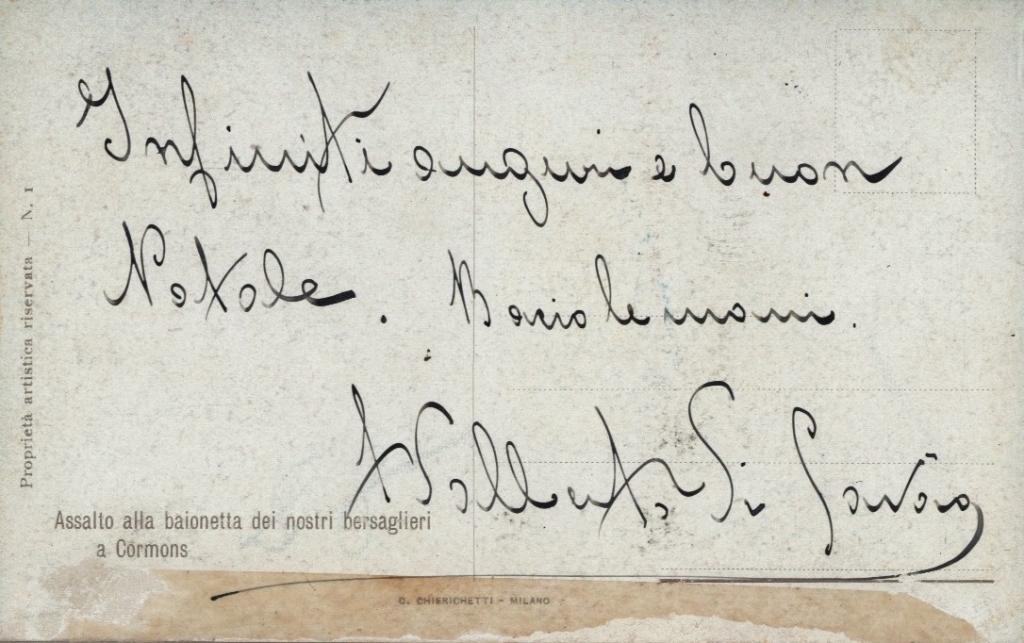 Infiniti auguri e buon
Natale. Bacio le mani.
Di Savoia
Assalto alla baionetta dei nostri bersaglieri
a Cormons
Proprietà artistica riservata — N. 1
G. CHIERICHETTI - MILANO